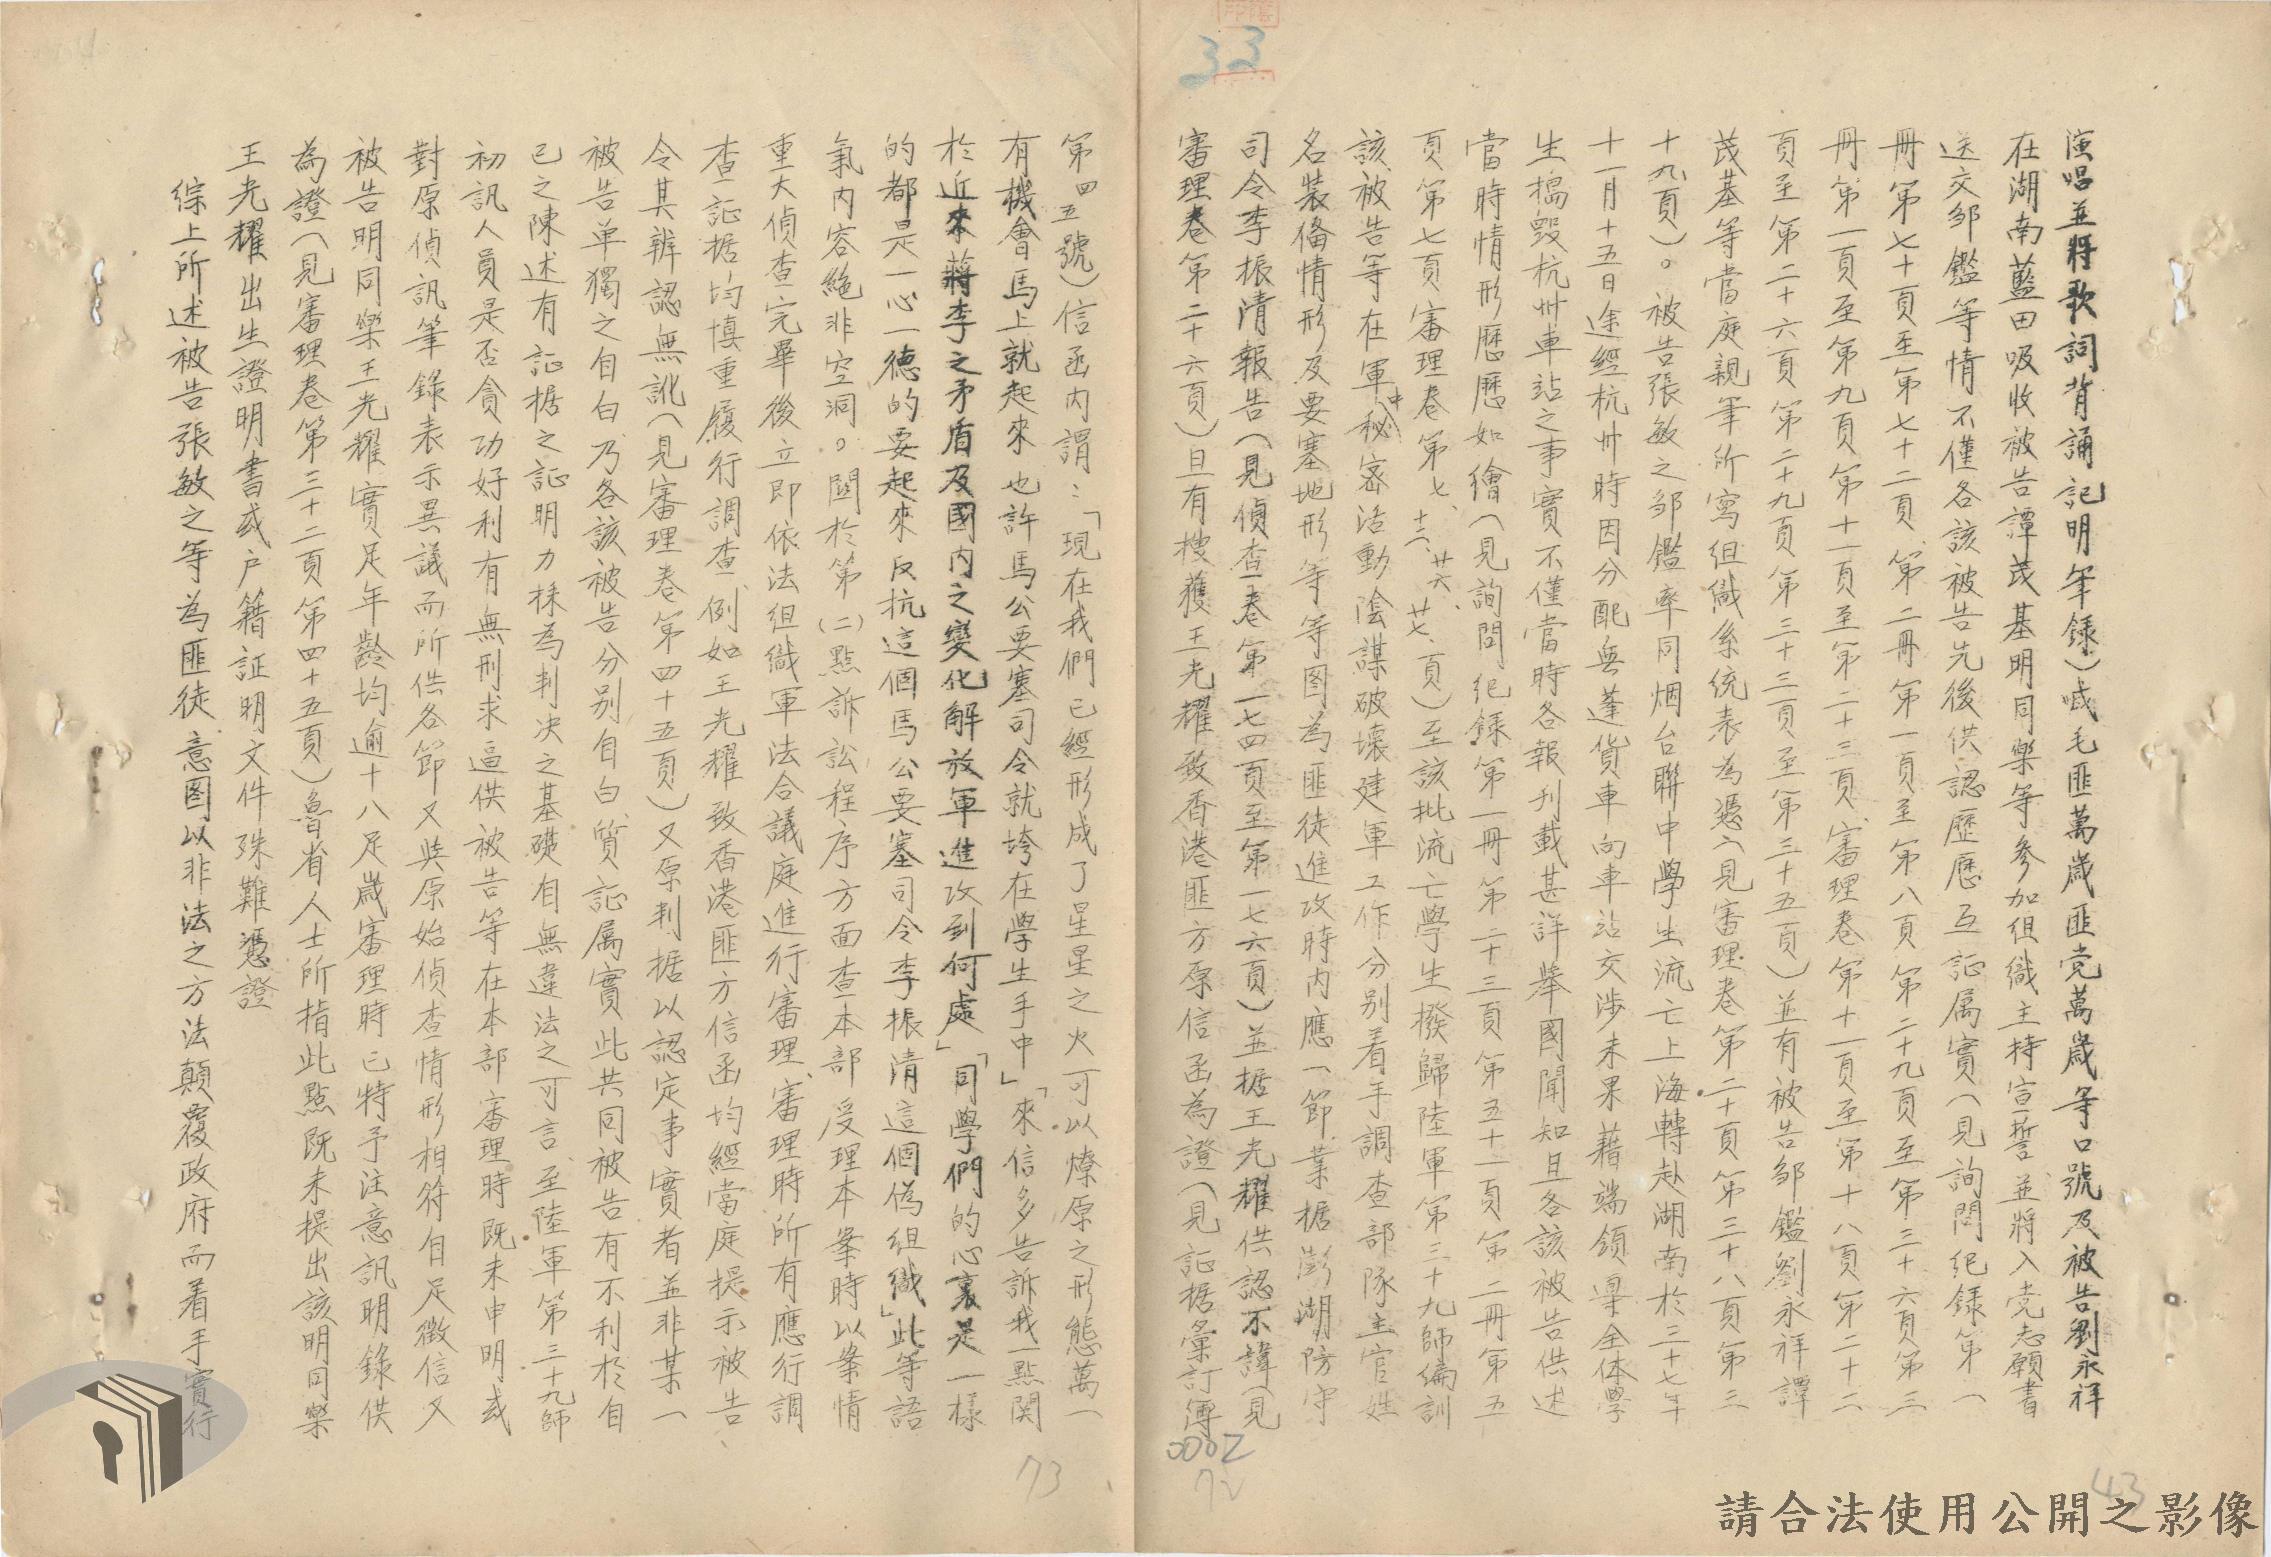 33
演唱並將歌詞背誦記明筆錄）喊毛匪萬歲匪党萬歲等口號及被告劉永祥
在湖南藍田吸收被告譚茂基明同樂等參加組織主持宣誓並將入党志願書
送交邹鑑等情不僅各該被告先後供認歷歷互証属實（見詢問紀錄第一
冊第七十頁至第七十二頁、第二冊第一頁至第八頁第二十九頁至第三十六頁第三
冊第一頁至第九頁第十一頁至第二十三頁、審理卷第十一頁至第十八頁第二十二
頁至第二十六頁第二十九頁第三十三頁至第三十五頁）並有被告邹鑑劉永祥譚
茂基等當庭親筆所寫組織系統表為憑（見審理卷第二十頁第三十八頁第三
十九頁）。被告張敏之邹鑑率同烟台聯中學生流亡上海轉赴湖南於三十七年
十一月十五日途經杭州時因分配無蓬貨車向車站交涉未果藉端領導全体學
生搗毀杭州車站之事實不僅當時各報刊載甚詳舉國聞知且各該被告供述
當時情形歷歷如繪（見詢問紀錄第一冊第二十三頁第五十一頁第二冊第五
頁第七頁審理卷第七、十二、廿六、廿七、頁）至該批流亡學生撥歸陸軍第三十九師編訓
該被告等在軍中秘密活動陰謀破壞建軍工作分別着手調查部隊主官姓
名裝俻情形及要塞地形等等图為匪徒進攻時内應一節業据澎湖防守
司令李振清報告（見偵查卷第一七四頁至第一七六頁）並据王光耀供認不諱（見
審理卷第二十六頁）且有搜獲王光耀致香港匪方原信函為證（見証据彙訂簿
0002
72
43
第四五號）信函内謂：「現在我們已經形成了星星之火可以燎原之形態萬一
有機會馬上就起來也許馬公要塞司令就垮在學生手中」「來信多告訴我一點関
於近來蔣李之矛盾及國内之變化解放軍進攻到何處」「同學們的心裏是一樣
的都是一心一德的要起來反抗這個馬公要塞司令李振清這個偽組織」此等語
氣内容絕非空洞。関於第（二）點訴訟程序方面查本部受理本案時以案情
重大偵查完畢後立即依法組織軍法合議庭進行審理、審理時所有應行調
查証据均慎重履行調查、例如王光耀致香港匪方信函均經當庭提示被告
令其辨認無訛（見審理卷第四十五頁）又原判据以認定事實者並非某一
被告单獨之自白乃各該被告分別自白、質証属實此共同被告有不利於自
己之陳述有証据之証明力採為判决之基礎自無違法之可言至陸軍第三十九師
初訊人員是否貪功好利有無刑求逼供被告等在本部審理時既未申明或
對原偵訊筆錄表示異議而所供各節又與原始偵查情形相符自足徵信又
被告明同樂王光耀實足年齡均逾十八足歲審理時已特予注意訊明錄供
為證（見審理卷第三十二頁第四十五頁）魯省人士所指此點既未提出該明同樂
王光耀出生證明書或户籍証明文件殊難憑證
綜上所述被告張敏之等為匪徒意图以非法之方法顛覆政府而着手實行
73
請合法使用公開之影像